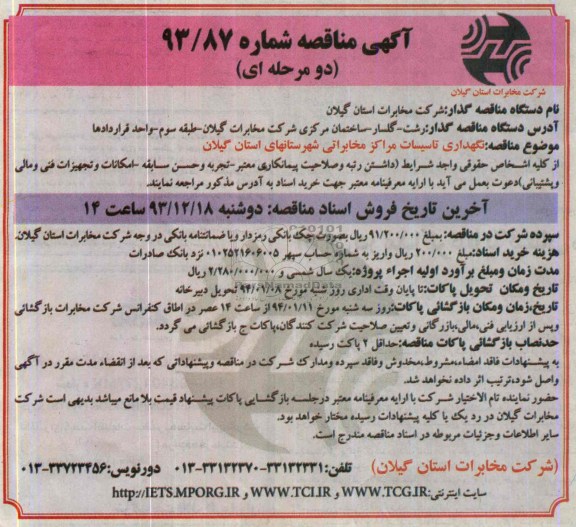 آگهی مناقصه شماره ۹۳/۸۷
(دو مرحله ای)
شرکت مخابرات استان گیلان
نام دستگاه مناقصه گذار: شرکت مخابرات استان گیلان
آدرس دستگاه مناقصه گذار: رشت-گلسار-ساختمان مرکزی شرکت مخابرات گیلان-طبقه سوم-واحد قراردادها
موضوع مناقصه: نگهداری تاسیسات مراکز مخابراتی شهرستانهای استان گیلان
از کلیه اشخاص حقوقی واجد شرایط (داشتن رتبه وصلاحیت پیمانکاری معتبر-تجربه وحسن سابقه-امکانات وتجهیزات فنی ومالی
وپشتیبانی) دعوت بعمل می آید با ارایه معرفینامه معتبر جهت خرید اسناد به آدرس مذکور مراجعه نمایند.
آخرین تاریخ فروش اسناد مناقصه: دوشنبه ۹۳/۱۲/۱۸ ساعت ۱۴
سپرده شرکت در مناقصه: بمبلغ ۹۱/۲۰۰/۰۰۰ ریال بصورت چک بانکی رمزدار ویا ضمانتنامه بانکی در وجه شرکت مخابرات استان گیلان.
هزینه خرید اسناد: مبلغ ۲۰۰/۰۰۰ ریال واریز به شماره حساب سپهر ۰۱۰۲۵۲۱۶۰۶۰۰۵ نزد بانک صادرات
مدت زمان ومبلغ برآورد اولیه اجراء پروژه: یک سال شمسی و ۲/۲۸۰/۰۰۰/۰۰۰ ریال
تاریخ ومکان تحویل پاکات: تا پایان وقت اداری روز شنبه مورخ ۹۴/۰۱/۰۸ تحویل دبیرخانه
تاریخ، زمان ومکان بازگشائی پاکات: روز سه شنبه مورخ ۹۴/۰۱/۱۱ از ساعت ۱۴ عصر در اطاق کنفرانس شرکت مخابرات بازگشائی
وپس از ارزیابی فنی، مالی، بازرگانی وتعیین صلاحیت شرکت کنندگان، پاکات ج بازگشائی می گردد.
حدنصاب بازگشائی پاکات مناقصه: حداقل ۲ پاکت رسیده
به پیشنهادات فاقد امضاء، مشروط، مخدوش وفاقد سپرده ومدارک شرکت در مناقصه وپیشنهاداتی که بعد از انقضاء مدت مقرر در آگهی
واصل شود، ترتیب اثر داده نخواهد شد.
حضور نماینده تام الاختیار شرکت با ارایه معرفینامه معتبر درجلسه بازگشایی پاکات پیشنهاد قیمت بلا مانع میباشد بدیهی است شرکت
مخابرات گیلان در رد یک یا کلیه پیشنهادات رسیده مختار خواهد بود.
سایر اطلاعات وجزئیات مربوطه در اسناد مناقصه مندرج است.
(شرکت مخابرات استان گیلان) تلفن: ۳۳۱۳۲۳۳۱-۳۳۱۳۲۳۷۰-۰۱۳ دورنویس: ۳۳۷۲۳۴۵۶-۰۱۳
سایت اینترنتی: WWW.TCG.IR و WWW.TCI.IR و http://IETS.MPORG.IR